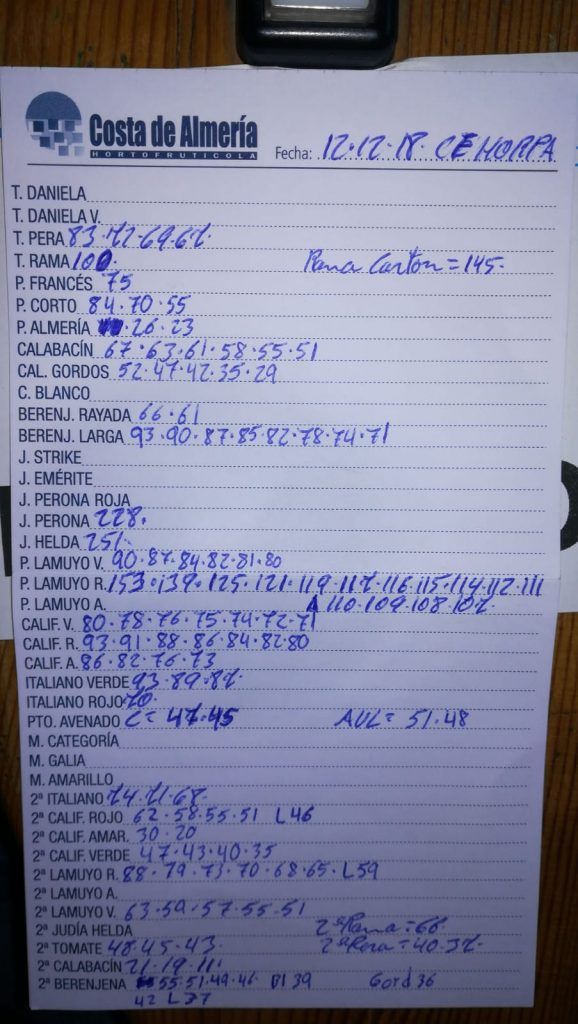 Costa de Almería
HORTOFRUTICOLA
Fecha: 12·12·18· CEHORPA
T. DANIELA
T. DANIELA V.
T. PERA 83·72·69·67·
T. RAMA 100· Rama Carton = 145·
P. FRANCÉS 75
P. CORTO 84·70·55
P. ALMERÍA ·26·23
CALABACÍN 67·63·61·58·55·51
CAL. GORDOS 52·47·42·35·29
C. BLANCO
BERENJ. RAYADA 66·61
BERENJ. LARGA 93·90·87·85·82·78·74·71
J. STRIKE
J. EMÉRITE
J. PERONA ROJA
J. PERONA 228·
J. HELDA 251·
P. LAMUYO V. 90·87·84·82·81·80
P. LAMUYO R. 153·139·125·121·119·117·116·115·114·112·111
P. LAMUYO A. 110·109·108·107·
CALIF. V. 80·78·76·75·74·72·71
CALIF. R. 93·91·88·86·84·82·80
CALIF. A. 86·82·76·73
ITALIANO VERDE 93·89·87·
ITALIANO ROJO 70·
PTO. AVENADO C= 47·45 AVL= 51·48
M. CATEGORÍA
M. GALIA
M. AMARILLO
2ª ITALIANO 74·71·68·
2ª CALIF. ROJO 62·58·55·51 L46
2ª CALIF. AMAR. 30·20
2ª CALIF. VERDE 47·43·40·35
2ª LAMUYO R. 88·79·73·70·68·65·L59
2ª LAMUYO A.
2ª LAMUYO V. 63·59·57·55·51
2ª JUDÍA HELDA 2ªRama=66·
2ª TOMATE 48·45·43· 2ªPera=40·37·
2ª CALABACÍN 21·19·11·
2ª BERENJENA 55·51·49·46 39 Gord 36
42 L37